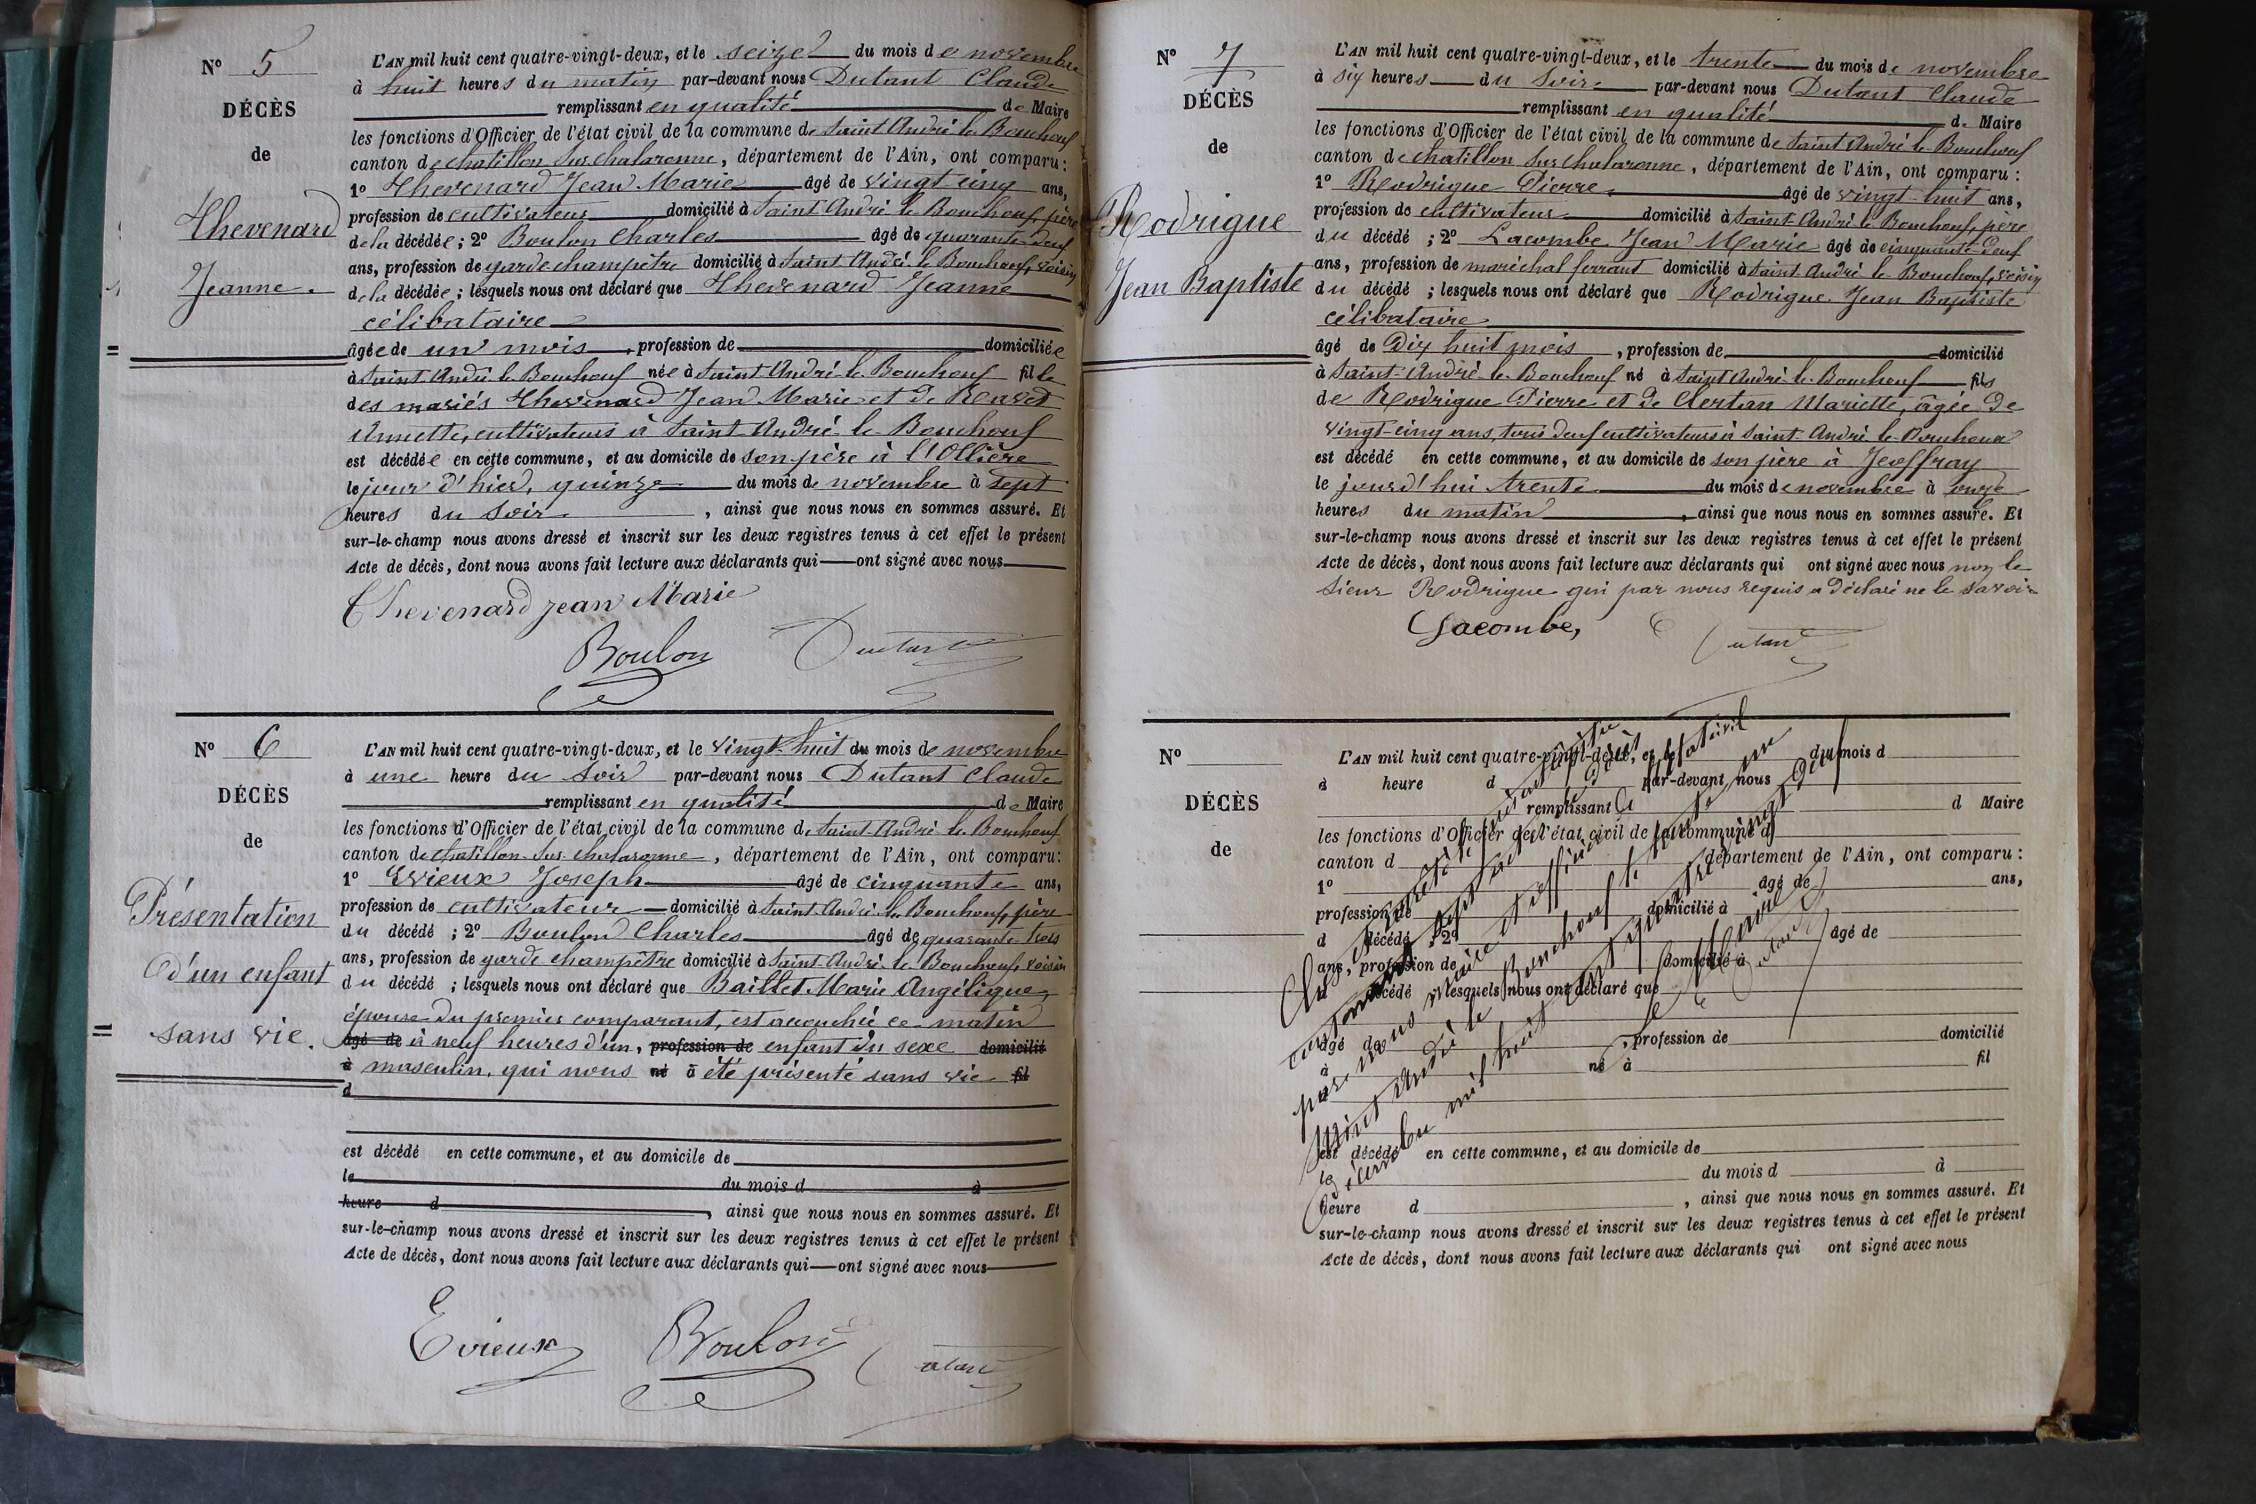 N° 5
DÉCÈS
de
Thevenard
Jeanne.
L'AN mil huit cent quatre-vingt-deux, et le seize du mois de novembre
à huit heures du matin par-devant nous Dutant Claude
remplissant en qualité de Maire
les fonctions d'Officier de l'état civil de la commune de Saint André le Bouchoux
canton de chatillon sur chalaronne, département de l'Ain, ont comparu :
1° Thevenard Jean Marie âgé de vingt cinq ans,
profession de cultivateur domicilié à Saint André le Bouchoux, père
de la décédée ; 2° Boulon Charles âgé de quarante deux
ans, profession de garde champêtre domicilié à Saint André le Bouchoux, voisin
de la décédée ; lesquels nous ont déclaré que Thevenard Jeanne
célibataire
âgée de un mois, profession de domiciliée
à Saint André le Bouchoux née à Saint André le Bouchoux fille
des mariés Thevenard Jean Marie et de
Annette, cultivateurs à Saint André le Bouchoux
est décédée en cette commune, et au domicile de son père à l'Ollière
le jour d'hier, quinze du mois de novembre à sept
heures du soir, ainsi que nous nous en sommes assuré. Et
sur-le-champ nous avons dressé et inscrit sur les deux registres tenus à cet effet le présent
Acte de décès, dont nous avons fait lecture aux déclarants qui ont signé avec nous
Thevenard jean Marie
Boulon Dutant
N° 6
DÉCÈS
de
Présentation
d'un enfant
sans vie.
L'AN mil huit cent quatre-vingt-deux, et le vingt-huit du mois de novembre
à une heure du soir par-devant nous Dutant Claude
remplissant en qualité de Maire
les fonctions d'Officier de l'état civil de la commune de Saint-André le Bouchoux
canton de chatillon sur chalaronne, département de l'Ain, ont comparu :
1° Evieux Joseph âgé de cinquante ans,
profession de cultivateur domicilié à Saint André le Bouchoux, père
du décédé ; 2° Boulon Charles âgé de quarante trois
ans, profession de garde champêtre domicilié à Saint André le Bouchoux, voisin
du décédé ; lesquels nous ont déclaré que Baillet Marie Angélique,
épouse du premier comparant, est accouchée ce matin
âgé de à neuf heures d'un, profession de enfant du sexe domicilié
à masculin, qui nous né à été présenté sans vie fil
d
est décédé en cette commune, et au domicile de
le du mois d à
heure d, ainsi que nous nous en sommes assuré. Et
sur-le-champ nous avons dressé et inscrit sur les deux registres tenus à cet effet le présent
Acte de décès, dont nous avons fait lecture aux déclarants qui ont signé avec nous
Evieux Boulon Dutant
N° 7
DÉCÈS
de
Rodrigue
Jean Baptiste
L'AN mil huit cent quatre-vingt-deux, et le trente du mois de novembre
à six heures du soir par-devant nous Dutant Claude
remplissant en qualité de Maire
les fonctions d'Officier de l'état civil de la commune de Saint André le Bouchoux
canton de chatillon sur chalaronne, département de l'Ain, ont comparu :
1° Rodrigue Pierre âgé de vingt-huit ans,
profession de cultivateur domicilié à Saint André le Bouchoux, père
du décédé ; 2° Lacombe Jean Marie âgé de cinquante-deux
ans, profession de maréchal ferrant domicilié à Saint André le Bouchoux, voisin
du décédé ; lesquels nous ont déclaré que Rodrigue Jean Baptiste
célibataire
âgé de Dix huit mois, profession de domicilié
à Saint André le Bouchoux né à Saint André le Bouchoux fils
de Rodrigue Pierre et de Clertan Mariette, âgée de
vingt-cinq ans, tous deux cultivateurs à Saint André le Bouchoux
est décédé en cette commune, et au domicile de son père à Jeoffray
le jourd'hui trente du mois de novembre à onze
heures du matin, ainsi que nous nous en sommes assuré. Et
sur-le-champ nous avons dressé et inscrit sur les deux registres tenus à cet effet le présent
Acte de décès, dont nous avons fait lecture aux déclarants qui ont signé avec nous non le
sieur Rodrigue qui par nous requis a déclaré ne le savoir
Lacombe, Dutant
N°
DÉCÈS
de
L'AN mil huit cent quatre-vingt-deux, et le du mois d
à heure d par-devant nous
remplissant d Maire
les fonctions d'Officier de l'état civil de la commune d
canton d département de l'Ain, ont comparu :
1° âgé de ans,
profession de domicilié à
d décédé ; 2° âgé de
ans, profession de domicilié à
d décédé ; lesquels nous ont déclaré que
âgé de, profession de domicilié
à né à fil
est décédé en cette commune, et au domicile de
le du mois d à
heure d, ainsi que nous nous en sommes assuré. Et
sur-le-champ nous avons dressé et inscrit sur les deux registres tenus à cet effet le présent
Acte de décès, dont nous avons fait lecture aux déclarants qui ont signé avec nous
Clos et arrêté le présent registre
contenant sept actes de décès
par nous maire et officier de l'état civil
Saint André le Bouchoux le trente un
décembre mil huit cent quatre vingt deux
Le Maire
Dutant